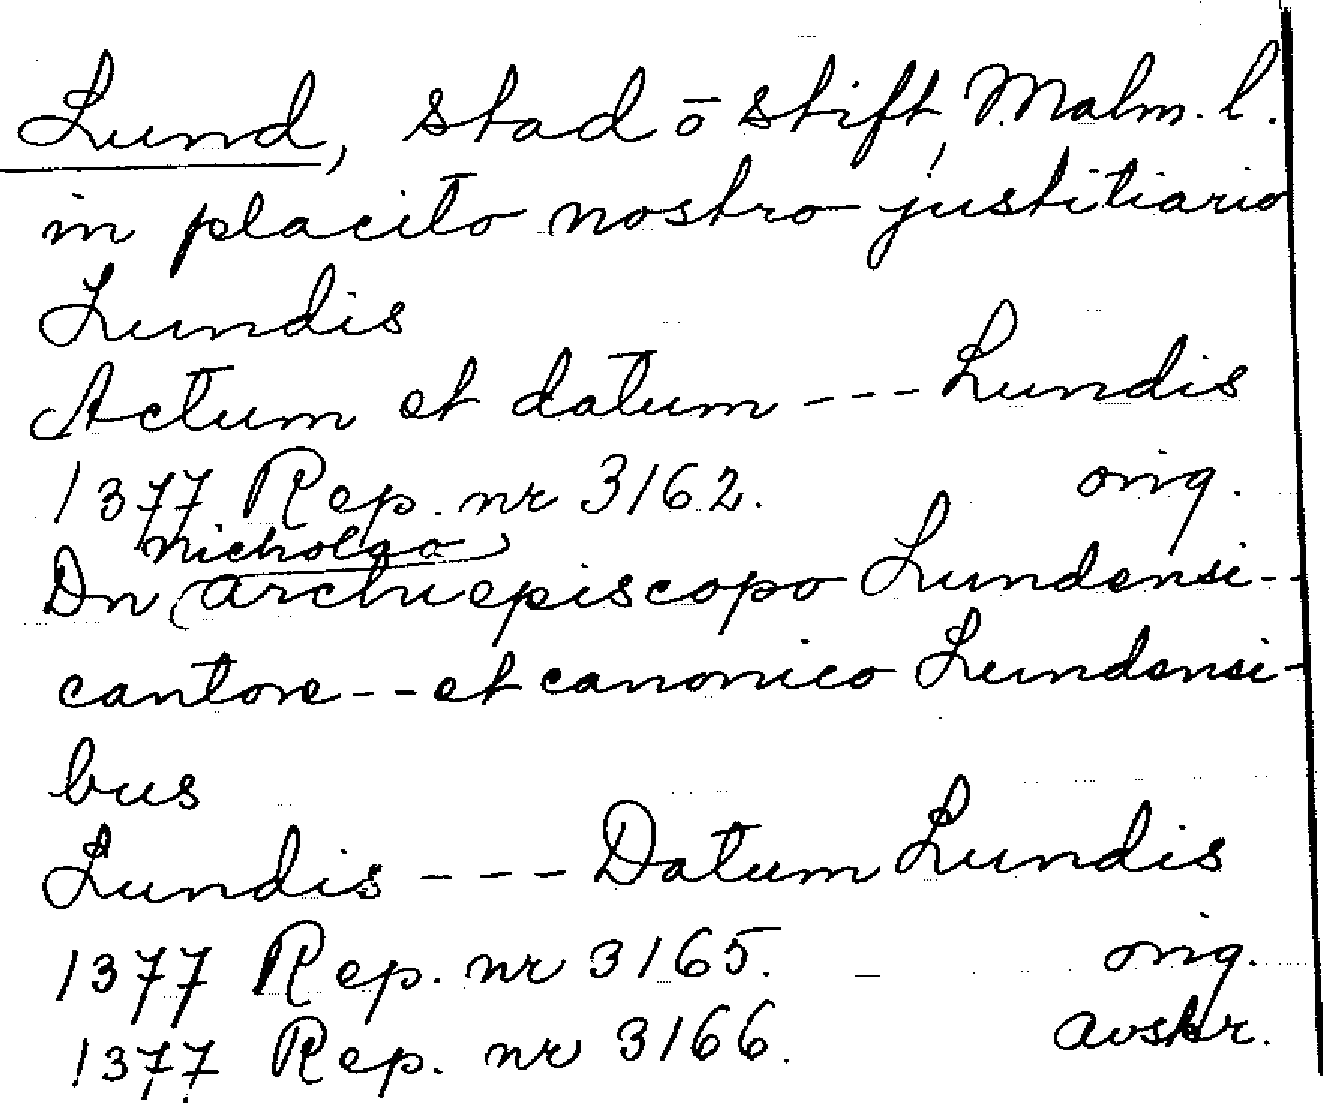 Lund, stad ō stift, Malm. l.
in placito nostro justitiario
Lundis
Actum et datum --- Lundis
1377 Rep. nr 3162. orig.
Nicholao
Dn (archiepiscopo Lundensi--
cantore -- et canonico Lundensi-
bus
Lundis --- Datum Lundis
1377 Rep. nr 3165. orig.
1377 Rep. nr 3166. avskr.